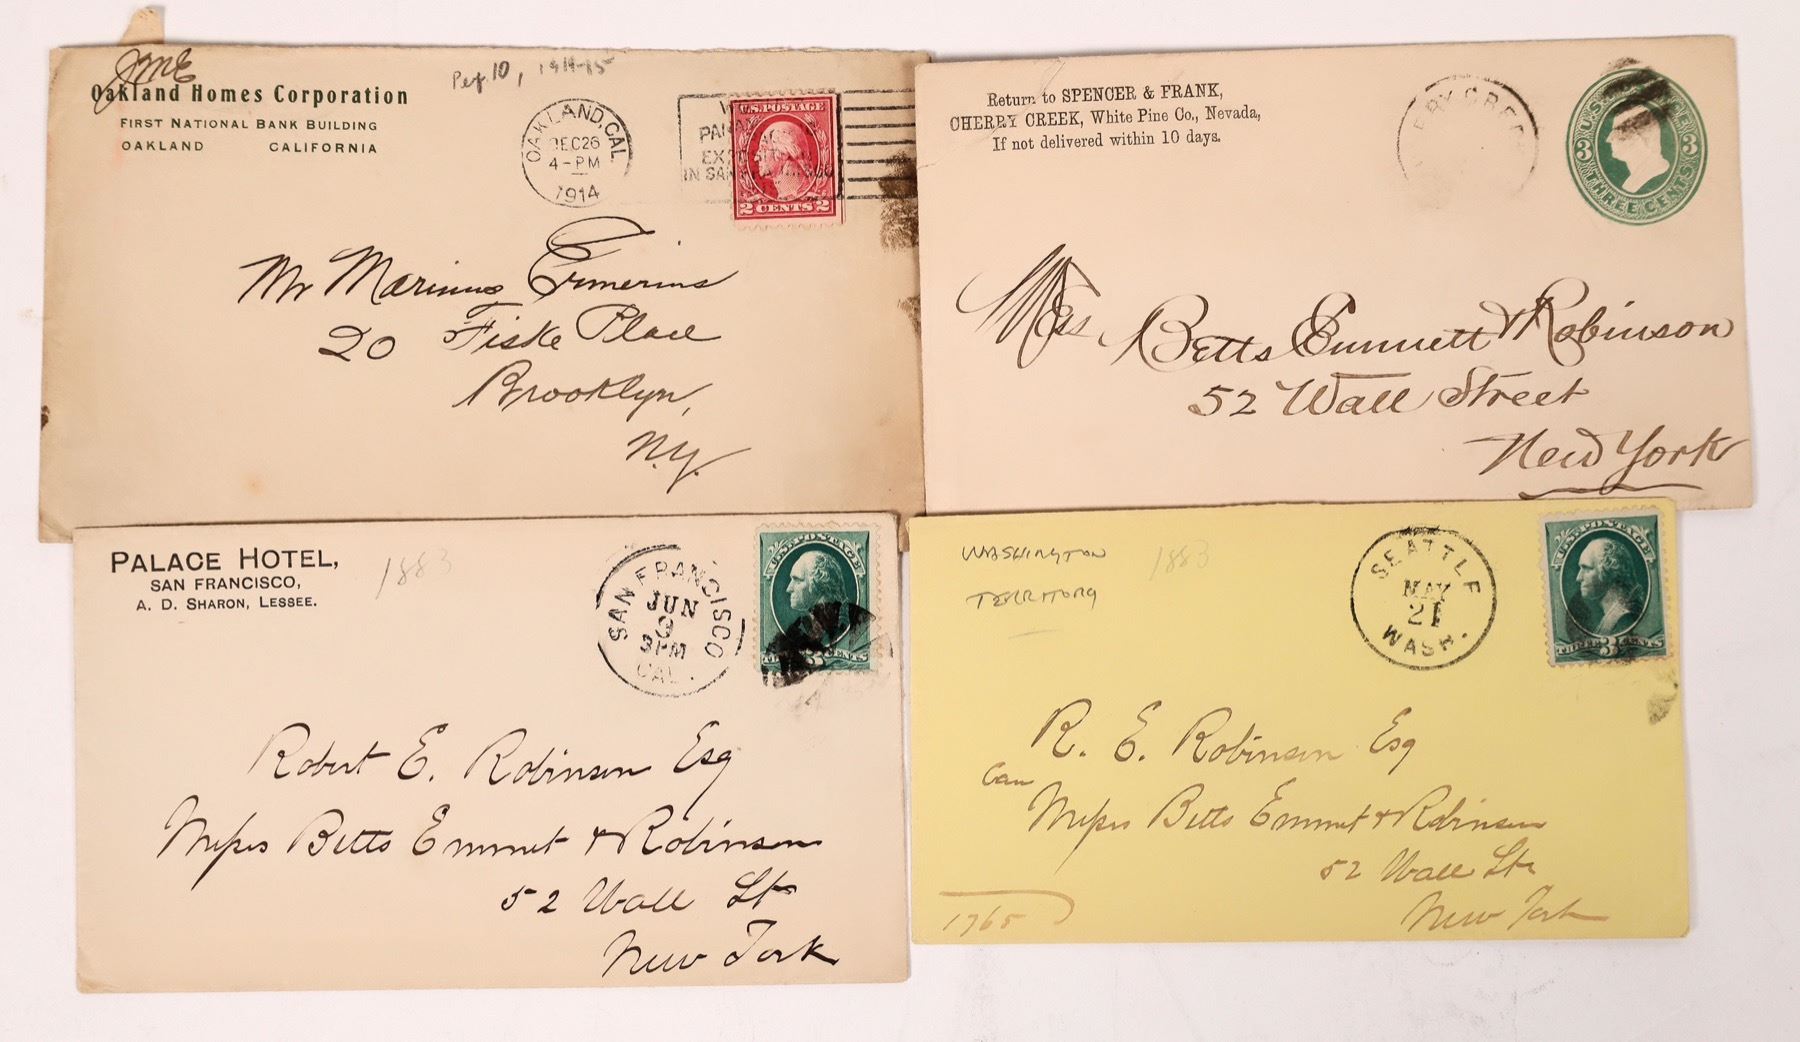 JME
Oakland Homes Corporation
FIRST NATIONAL BANK BUILDING
OAKLAND CALIFORNIA
10, 1914-15
OAKLAND, CAL.
DEC 26
4-PM
1914
IN SAN
U.S. POSTAGE
2 CENTS 2
Mr Marinus Ermerins
20 Fiske Place
Brooklyn,
N.Y.
Return to SPENCER & FRANK,
CHERRY CREEK, White Pine Co., Nevada,
If not delivered within 10 days.
ERRY CREE
U.S.
3 3
THREE CENTS
Mess. Betts Emmett & Robinson
52 Wall Street
New York
PALACE HOTEL,
SAN FRANCISCO,
A. D. SHARON, LESSEE.
1883
SAN FRANCISCO
JUN
9
3 PM
CAL.
U.S. POSTAGE
CENTS
Robert E. Robinson Esq
Messrs Betts Emmet & Robinson
52 Wall St
New York
WASHINGTON
TERRITORY
1883
SEATTLE
MAY
21
WASH.
U.S. POSTAGE
THREE 3 CENTS
R. E. Robinson Esq
Care
Messrs Betts Emmet & Robinson
52 Wall St
New York
1765